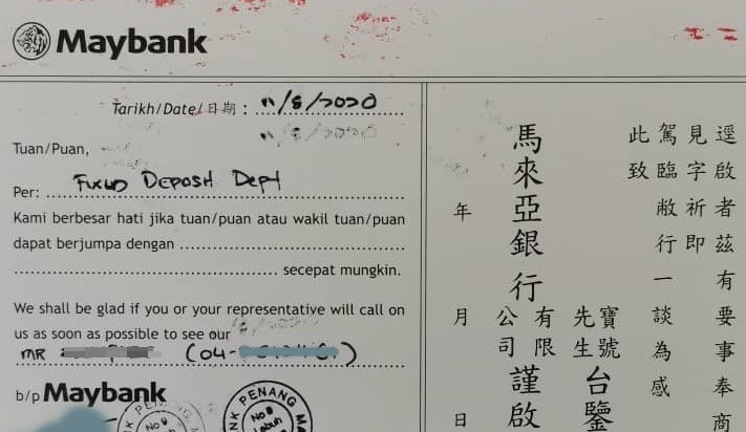 Maybank
Tarikh/Date/日期 : 11/8/2020
Tuan/Puan,
Per: Fixed Deposit Dept
Kami berbesar hati jika tuan/puan atau wakil tuan/puan
dapat berjumpa dengan
secepat mungkin.
We shall be glad if you or your representative will call on
us as soon as possible to see our
MR (04-)
b/p Maybank
PENANG
Lebuh
逕啟者茲有要事奉商
見字祈即
駕臨敝行一談為感
此致
寶號
先生
台鑒
馬來亞銀行
有限
公司
謹啟
年 月 日